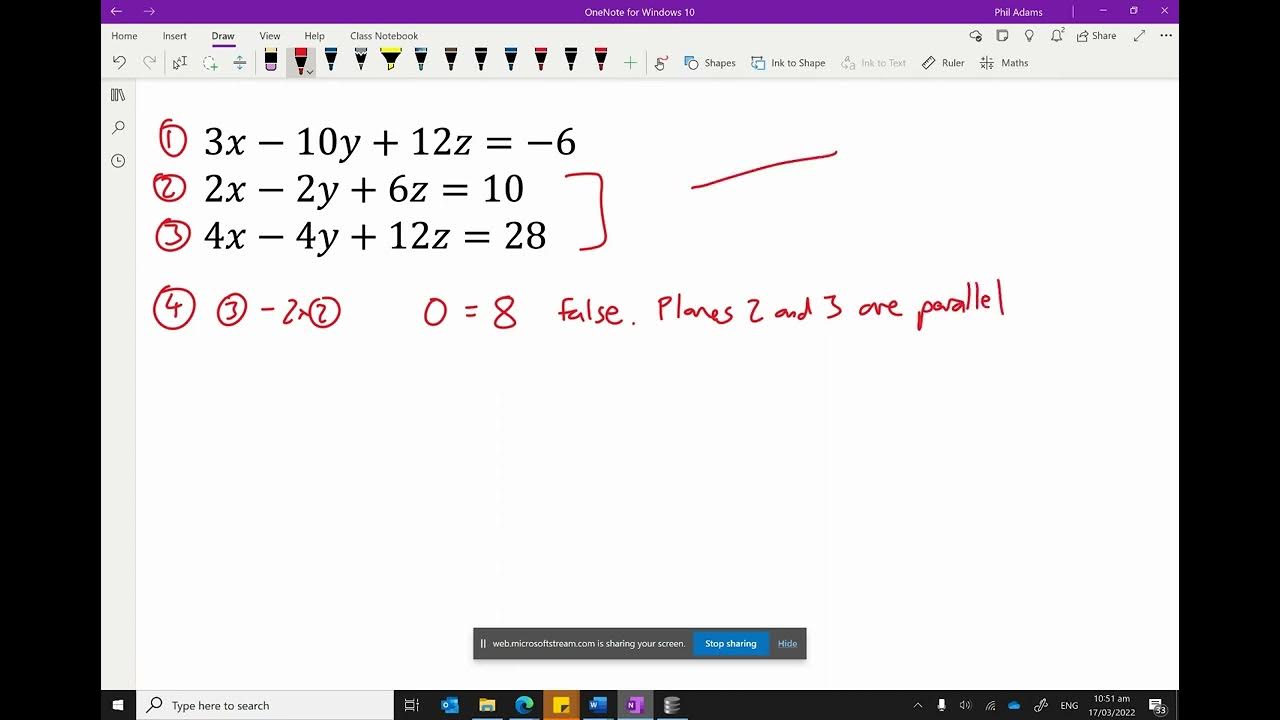 OneNote for Windows 10
Phil Adams
Home Insert Draw View Help Class Notebook
Share
Shapes Ink to Shape Ink to Text Ruler Maths
① 3x − 10y + 12z = −6
② 2x − 2y + 6z = 10
③ 4x − 4y + 12z = 28
④ ③ - 2×② 0 = 8 false. Planes 2 and 3 are parallel
web.microsoftstream.com is sharing your screen. Stop sharing Hide
Type here to search
ENG
10:51 am
17/03/2022
33